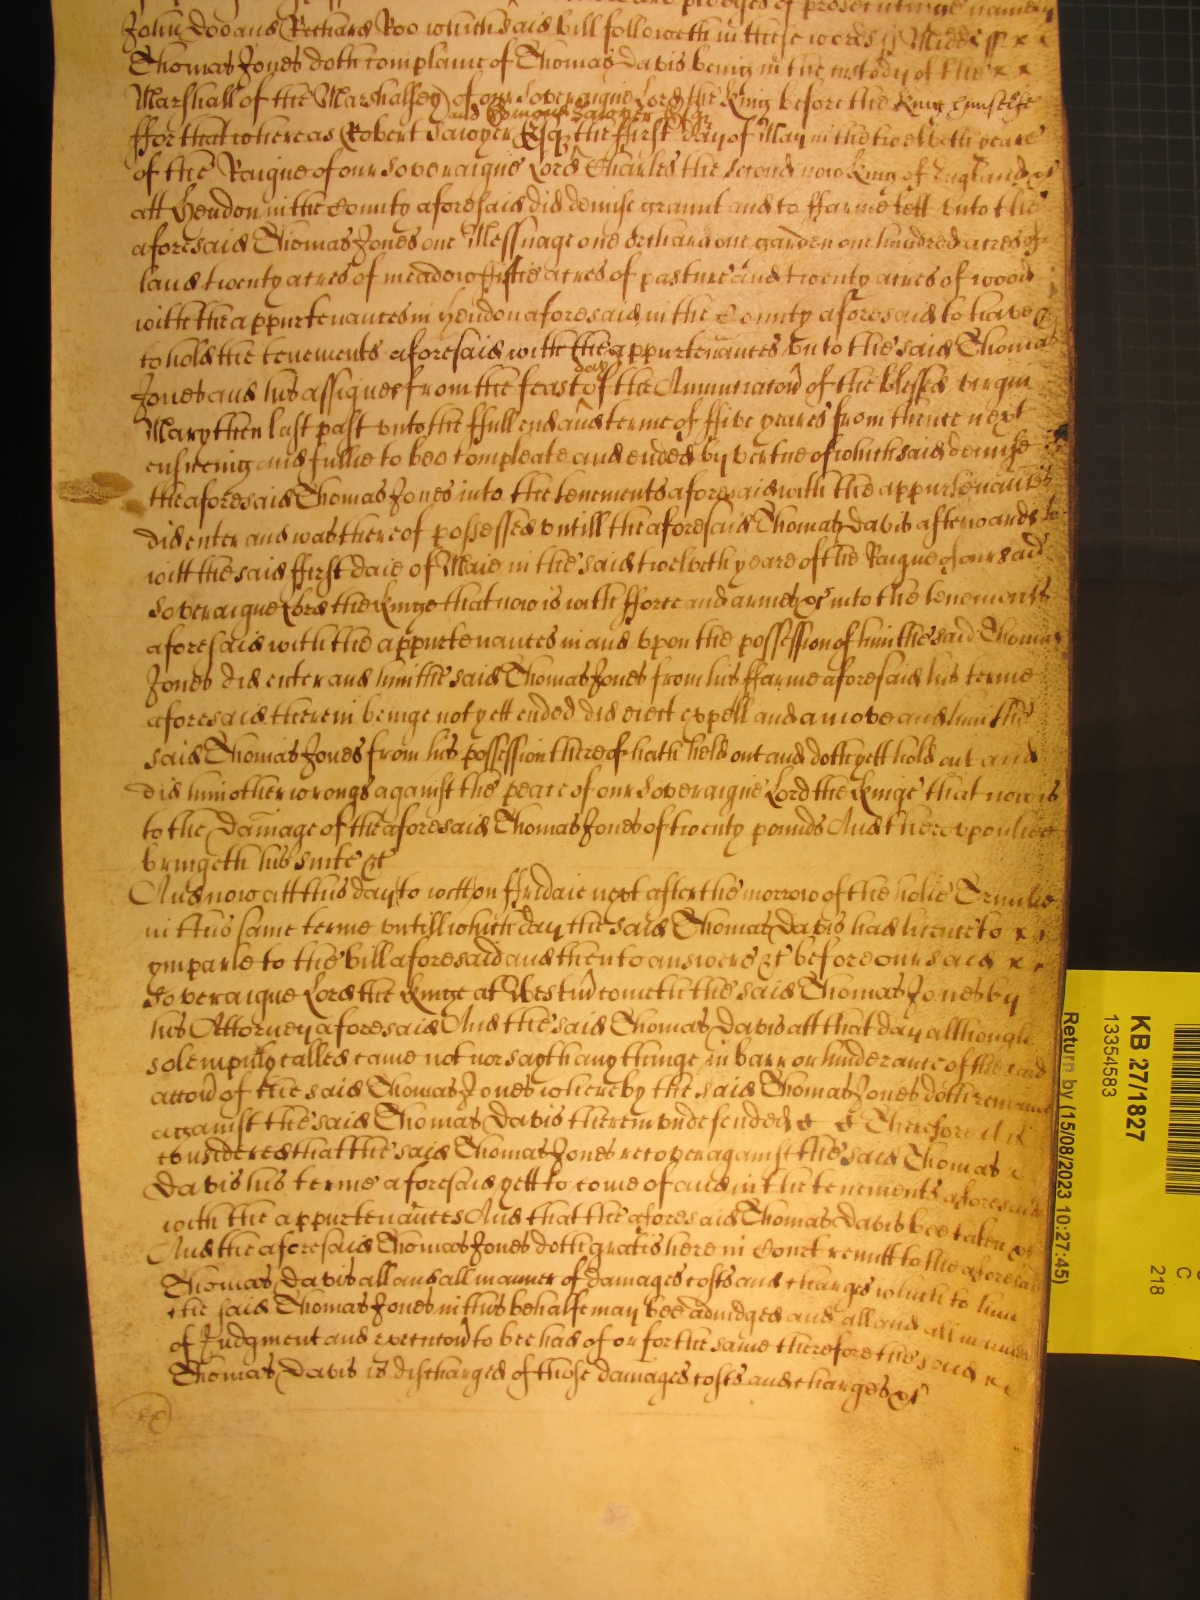 pledges of prosecutinge namely
John Doo and Richard Roo which said bill followeth in these words ss Midds ss x x
Thomas Jones doth complaine of Thomas Davis being in the custody of the x x
Marshall of the Marshalsey of our Soveraigne Lord the King before the King himselfe
and Edmond Sawyer Esqr
ffor that whereas Robert Sawyer Esqr the ffirst day of May in the twelveth yeare
of the Raigne of our Soveraigne Lord Charles the Second now King of England &c
att Hendon in the County aforesaid did demise graunt and to ffarme lett unto the
aforesaid Thomas Jones one Messuage one orchard one garden one hundred acres of
land twenty acres of meadow ffiftie acres of pasture and twenty acres of wood
with the appurtenances in Hendon aforesaid in the County aforesaid to have &
to hold the tenements aforesaid with the appurtenances unto the said Thomas
day
Jones and his assignes from the feast of the Annunciacon of the blessed virgin
Mary then last past unto the ffull end and terme of ffive yeares from thence next
ensueing and fullie to bee compleate and ended by vertue of which said demise
the aforesaid Thomas Jones into the tenements aforesaid with the appurtenances
did enter and was thereof possessed untill the aforesaid Thomas Davis afterwards to
witt the said ffirst daie of Maie in the said twelveth yeare of the Raigne of our said
Soveraigne Lord the Kinge that now is with fforce and armes &c into the tenements
aforesaid with the appurtenances in and upon the possession of him the said Thomas
Jones did enter and him the said Thomas Jones from his ffarme aforesaid his terme
aforesaid therein beinge not yett ended did eiect expell and amove and him the
said Thomas Jones from his possession thereof hath held out and doth yett hold out and
did him other wrongs against the peace of our Soveraigne Lord the Kinge that now is
to the Damage of the aforesaid Thomas Jones of twenty pounds And thereupon hee
bringeth his suite &c
And now att this day to witt on ffridaie next after the morrow of the holie Trinitie
in this same terme untill which day the said Thomas Davis had licence to x x
ymparle to the bill aforesaid and then to answere &c before our said x x
Soveraigne Lord the Kinge at Westm cometh the said Thomas Jones by
his Attorney aforesaid And the said Thomas Davis att that day although
solempnly called came not nor sayth any thinge in barr or hinderance of the said
accon of the said Thomas Jones whereby the said Thomas Jones doth remaine
against the said Thomas Davis therein undefended & & Therefore it is
considered that the said Thomas Jones recover against the said Thomas
Davis his terme aforesaid yett to come of and in the tenements aforesaid
with the appurtenances And that the aforesaid Thomas Davis bee taken &c
And the aforesaid Thomas Jones doth gratis here in Court remitt to the aforesaid
Thomas Davis all and all manner of damages costs and charges which to him
the said Thomas Jones in this behalfe may bee adiudged and all and all manner
of Judgment and execucon to bee had of or for the same therefore the said x x
Thomas Davis is discharged of those damages costs and charges &c
KB 27/1827
13354583
Return by (15/08/2023 10:27:45)
C
218